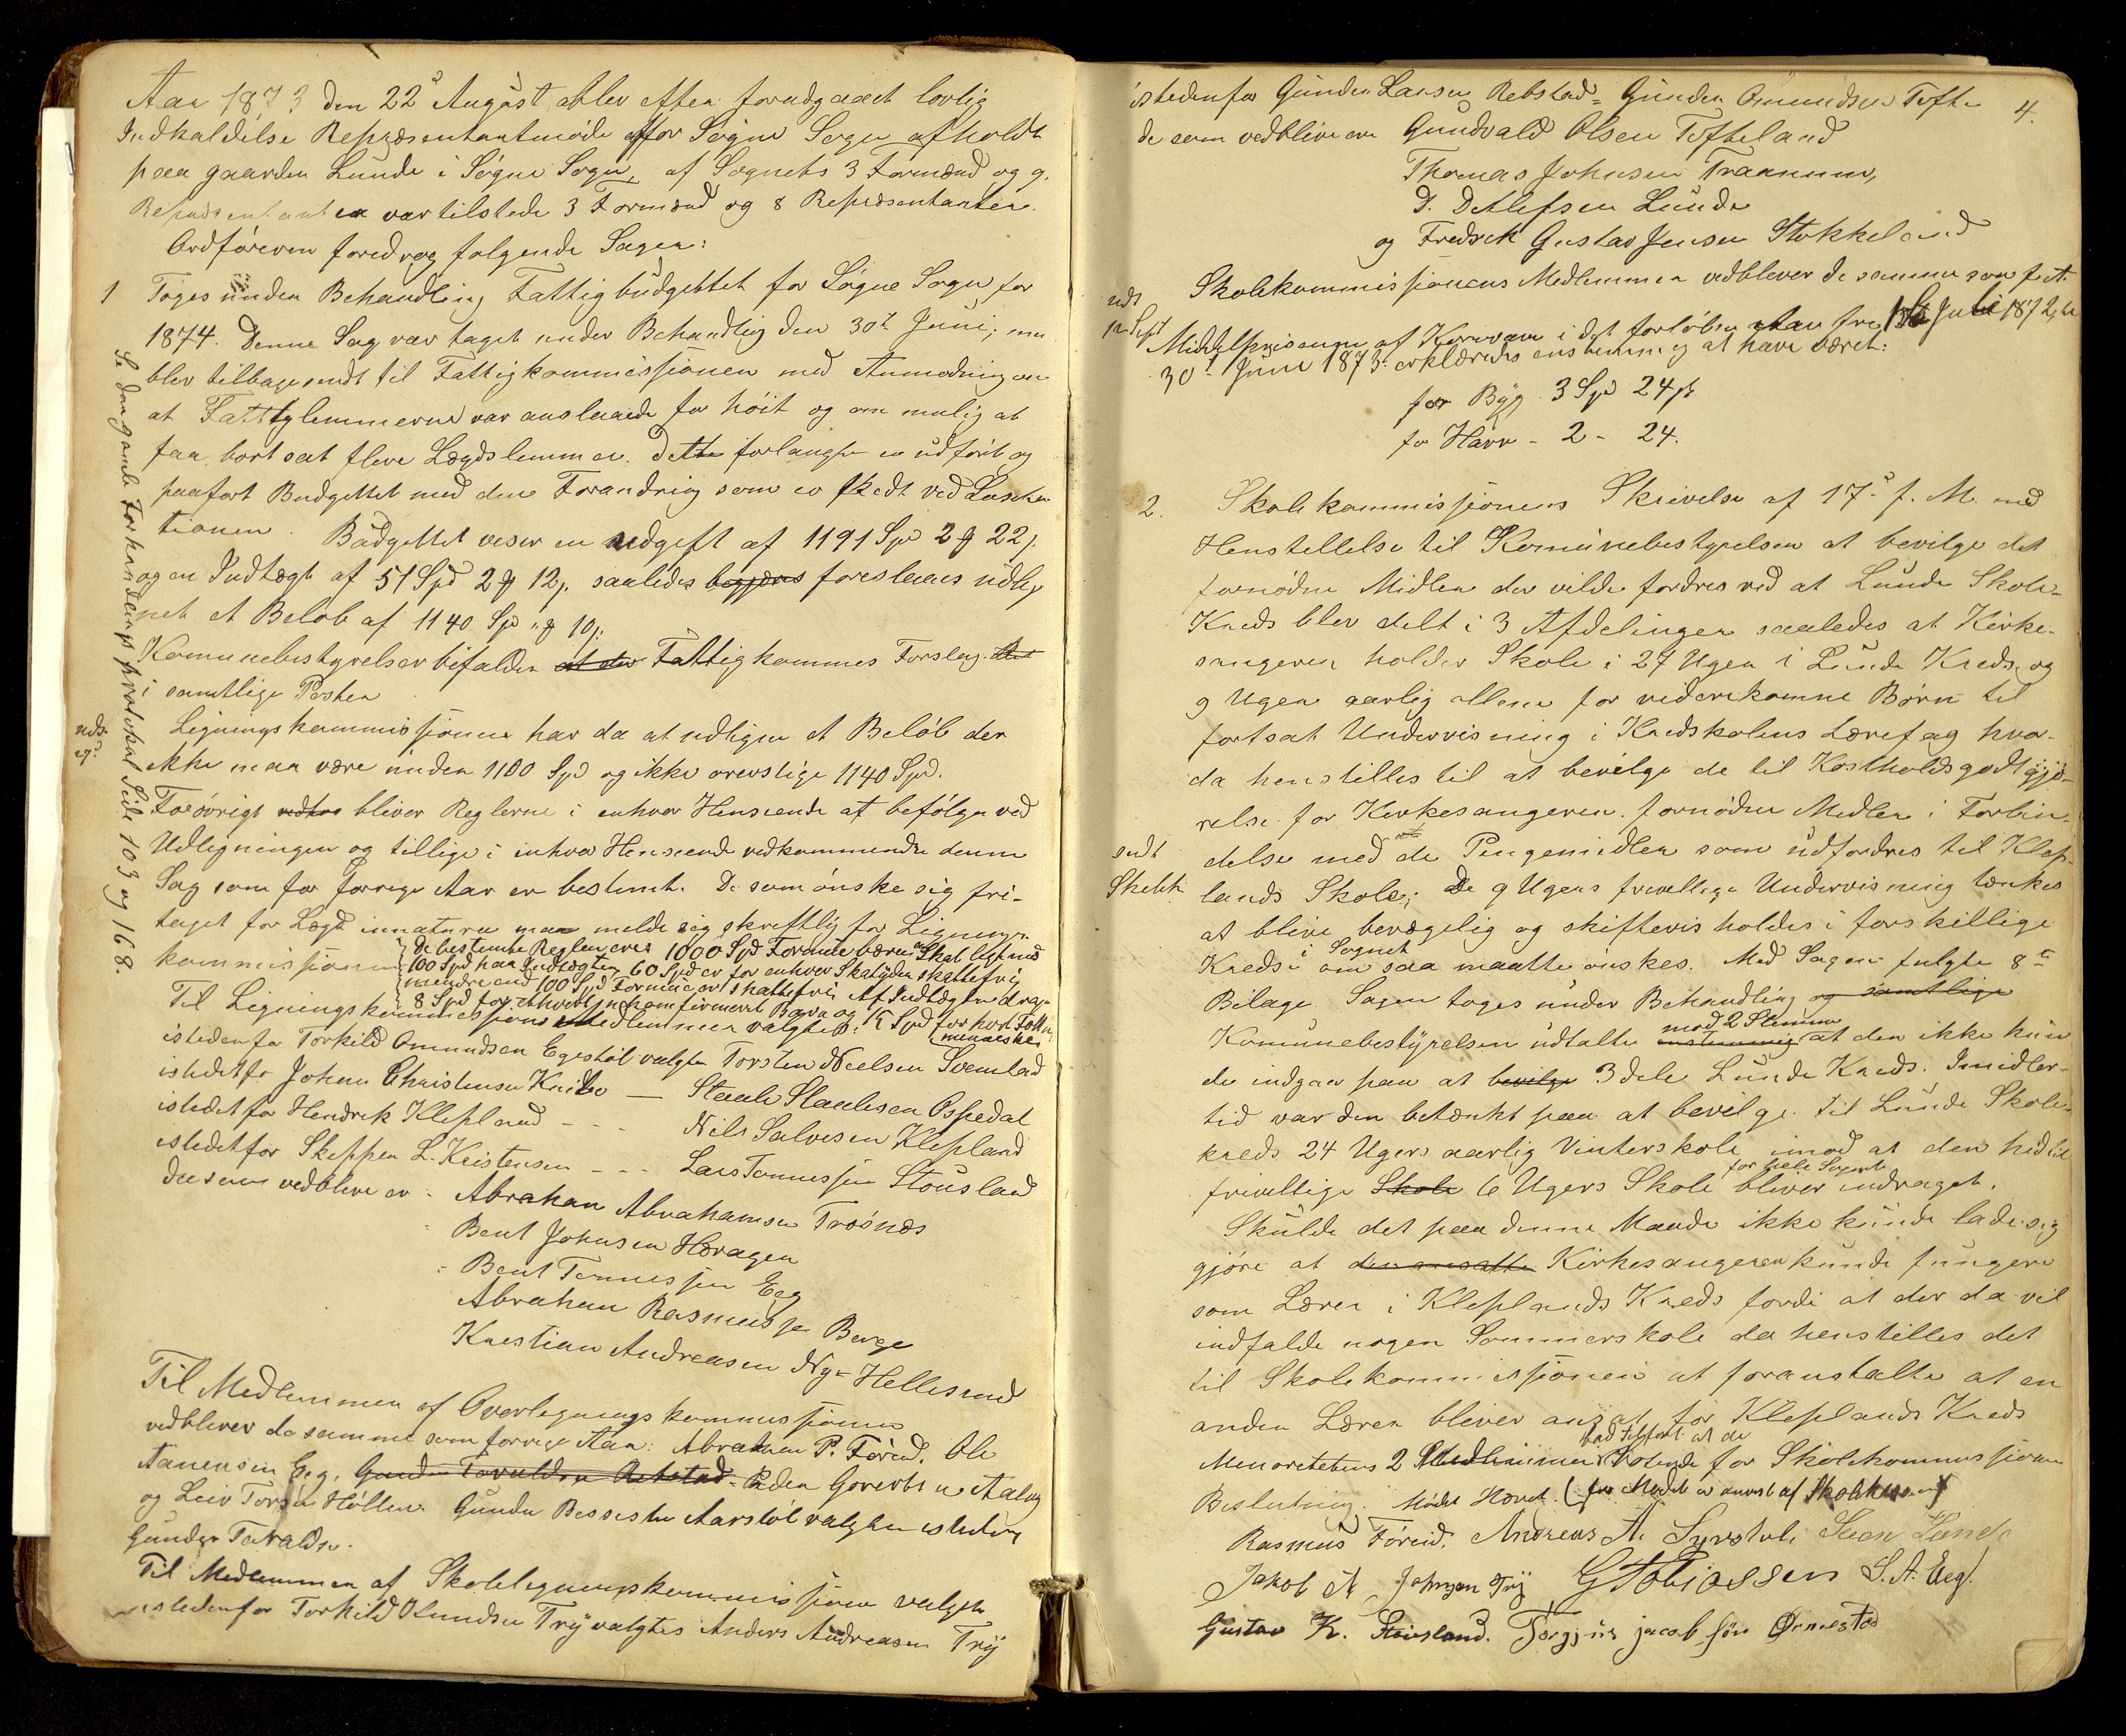 Aar 1873 den 22de August blev efter forudgaaet lovlig
Indkaldelse Repræsentantmøde for Søgne Sogn afholdt
paa gaarden Lunde i Søgne Sogn, af Sognets 3 Formænd og 9.
Repræsentanter var tilstede 3 Formænd og 8 Repræsentanter.
Ordføreren foredrog følgende Sager:
1 Toges under Behandling Fattigbudgettet for Søgne Sogn for
1874. Denne Sag var taget under Behandlig den 30te Juni, men
blev tilbagesendt til Fattigkommissjonen med Anmodning om
at Fattiglemmerne var anslaaede for høit og om mulig at
faa bortsat flere Lægdslemmer. Dette forlangte er udført og
paaført Budgettet med den Forandring som er skedt ved
tionen. Budgettet viser en Udgift af 1191 Spd 2 ꝗ 22 s.
og en Indtægt af 51 Spd 2 ꝗ 12 s. saaledes begjæres foreslaaes udlig
net et Beløb af 1140 Spd " ꝗ 10 s.
Komunebestyrelsen bifalder at der Fattigkommes Forslag
i samtlige Poster
Ligningskommissjonen har da at udligne et Beløb der
uds.
ikke maa være under 1100 Spd og ikke overstige 1140 Spd.
Forøvrigt bliver Reglerne i enhver Henseende at befølge ved
Udligningen og tillige i enhver Henseende vedkommende denne
Sag som for forrige Aar er bestemt. De som ønske sig fri-
taget for Lægd innatura maa melde sig skriftlig for Lignings-
kommissjonen
De bestemte Regler, er 1000 Spd Formue bærer Skat ligt med
100 Spd paa Indtægten, 60 Spd er for enhver Skatyder skattefri
mindre end 100 Spd Formue er skattefri. Af Indtægten drages
8 Spd for ethvert ukonfirmeret Barn og 15 Spd for hvert Folke
menneske
Til Ligningskommissjons Medlemmer valgtes:
istedenfor Torkild Omundsen Egestøl valgtes Torsten Nielsen Svemlad
istedetfor Johan Christensen Knibe — Staale Staalesen Ospedal
istedetfor Hendrik Klepland - - - Nils Salvesen Klepland
istedetfor Skipper L. Kristensen - - - Lars Tønnessen Stousland
der som vedblive er: Abraham Abrahamsen Trøsnæs
Bent Johnsen Horagen
Bent Tønnessen Eeg
Abraham Rasmussen Berge
Kristian Andreasen Ny-Hellesund
Se den gamle Forhandlings protokol Side 103 og 168.
Til Medlemmer af Overligningskommissjonen
vedbliver de samme som forrige Aar: Abraham P. Føreid, Ole
Aanensen Eeg, Gunder Tarvaldsen Rebstad. Peder Goverts n Aaløy
og Leiv Torsen Høllen. Gunder Bessesen Aarstøl valgtes istedenf
Gunder Tarvalds.
Til Medlemmer af Skoleligningskommissjonen valgtes
istedenfor Torkild Omundsen Try valgtes Anders Andreasen Try
4.
istedenfor Gunder Larsen Rebstad = Gunder Omundsen Tofte
de som vedblive er Gundvald Olsen Tofteland
Thomas Johnsen Traanum,
D. Detlefsen Lunde
og Fredrik Gustav Jensen Stokkeland
Skolekommissjonens Medlemmer vedbliver de samme som f. A.
uds
12 Sept
Middelpriserne af Kornvare i det forløbne Aar fra 1ste Juli 1872 til
30te Juni 1873. erklæredes enstemmig at have været:
for Byg 3 Spd 24 s
for Havre - 2 - 24.
2. Skolekommissjonens Skrivelse af 17de f. M. med
Henstillelse til Komunebestyrelsen at bevilge det
fornødne Midler der vilde fordres ved at Lunde Skole-
Kreds blev delt i 3 Afdelinger saaledes at Kirke-
sangeren holder Skole i 27 Uger i Lunde Kreds og
9 Uger aarlig allene for viderekomne Børn til
fortsat Undervisning i Kredskolens Lærefag hvor-
da henstilles til at bevilge de til Kostholdsgodtgjø-
relse for Kirkesangeren fornødne Midler i Forbin-
delse med de Pengemidler som udfordres til Klep-
sendt
Skekk
lands Skole; De 9 Ugers frivillige Undervisning tænkes
at blive bevægelig og skiftevis holdes i forskillige
Kredse i Sognet om saa maatte ønskes. Med Sagen fulgte 8te
Bilage. Sagen toges under Behandling og samtlige
Komunebestyrelsen udtalte enstemmig mod 2 Stemmer at den ikke kun
de indgaa paa at bevilge 3dele Lunde Kreds. Imidler-
tid var den betænkt paa at bevilge til Lunde Skole-
kreds 24 Ugers aarlig Vinterskole imod at den hidtil
frivillige Skole 6 Ugers Skole for hele Sognet bliver indraget.
Skulde det paa denne Maade ikke kunde lade sig
gjøre at den ansatte Kirkesangeren kunde fungere
som Lærer i Kleplands Kreds fordi at der da vil
indfalde nogen Sommerskole da henstilles det
til Skolekommissjonen at foranstalte at en
anden Lærer bliver ansat for Kleplands Kreds
Menoritetens 2 Medlemmer bad tilført at de Voterede for Skolekommissjonens
Beslutning. Mødet Hævet.
Rasmus Føreid. Andreas A. Syrstøl. Steen Lunde
Jakob A Johnsen Try G Tobiassen S. A. Eeg.
Gustav K. Stousland. Torgjus jacob søn Ørnestød